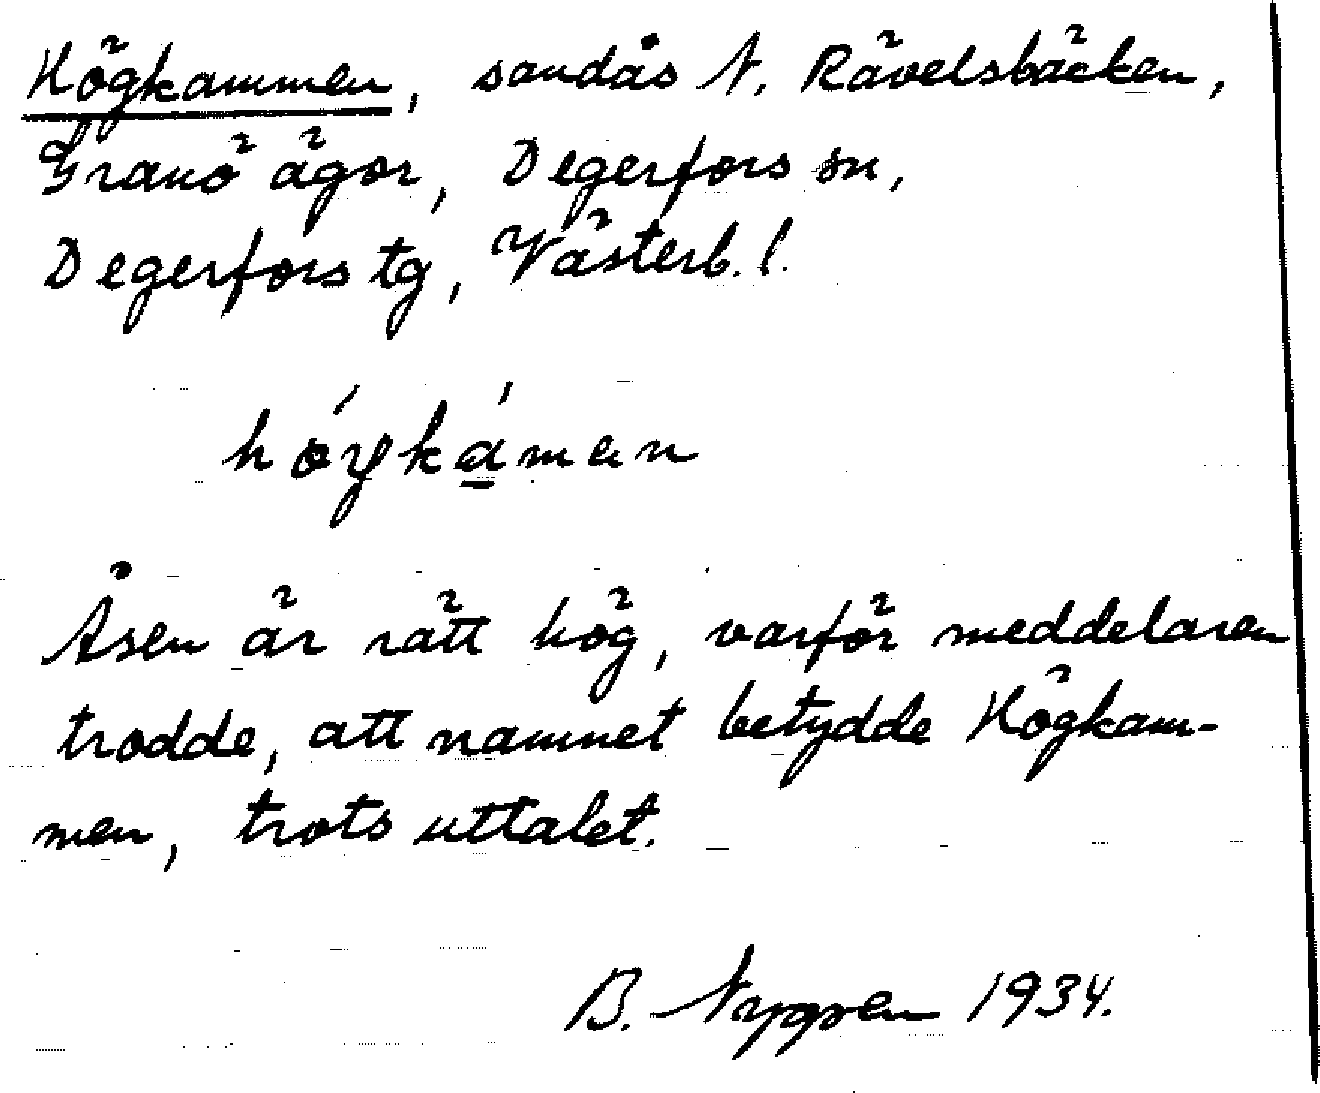 Högkammen, sandås N. Rävelsbäcken,
Granö ägor, Degerfors sn,
Degerfors tg, Västerb. l.
Åsen är rätt hög, varför meddelaren
trodde, att namnet betydde Högkam-
men, trots uttalet.
B. Nygren 1934.